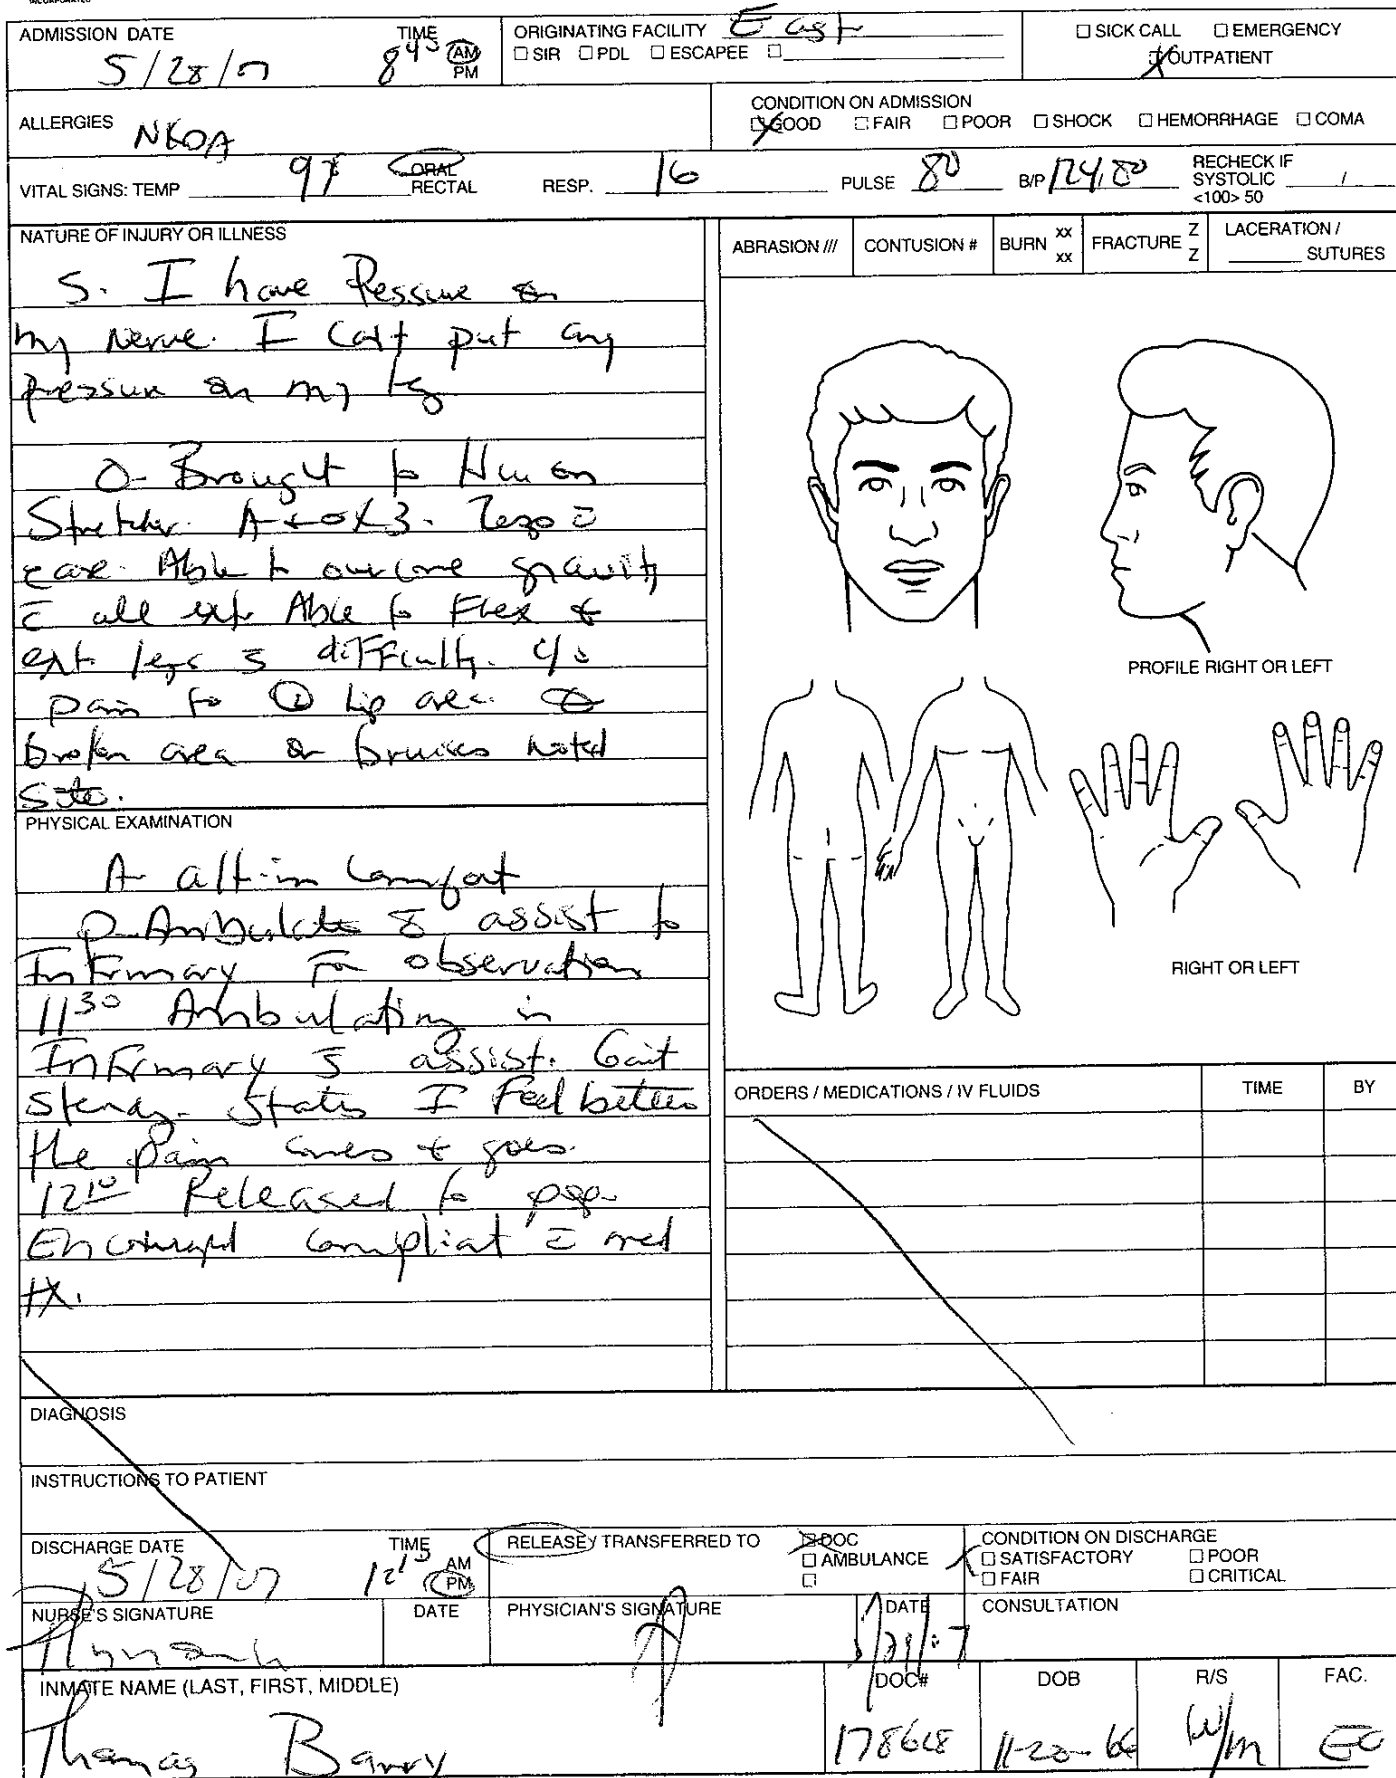 INCORPORATED
ADMISSION DATE
5/28/07
TIME
8 45 AM
PM
ORIGINATING FACILITY East
☐ SIR ☐ PDL ☐ ESCAPEE ☐
☐ SICK CALL ☐ EMERGENCY
☒ OUTPATIENT
ALLERGIES NKDA
CONDITION ON ADMISSION
☒ GOOD ☐ FAIR ☐ POOR ☐ SHOCK ☐ HEMORRHAGE ☐ COMA
VITAL SIGNS: TEMP 97 ORAL
RECTAL
RESP. 16
PULSE 80
B/P 124/80
RECHECK IF
SYSTOLIC /
<100> 50
NATURE OF INJURY OR ILLNESS
ABRASION /// CONTUSION # BURN xx xx FRACTURE Z Z LACERATION / SUTURES
S. I have Pessure on
my nerve. I cant put any
pressure on my leg
O- Brought to Hu on
Stretcher. A+Ox3.
ease. Able to overcome gravity
c̄ all ext. Able to Flex &
ext. legs s̄ difficulty. c/o
pain to Ⓛ hip area. ∅
broken area or bruises noted
site.
PROFILE RIGHT OR LEFT
RIGHT OR LEFT
PHYSICAL EXAMINATION
A- alt-in comfort
P- Ambulate s̄ assist to
Infirmary for observation
11 30 Ambulating in
Infirmary s̄ assist. Gait
steady. States I Feel better
the pain comes & goes.
12 10 Released to pop.
Encouraged compliat c̄ med
tx.
ORDERS / MEDICATIONS / IV FLUIDS TIME BY
DIAGNOSIS
INSTRUCTIONS TO PATIENT
DISCHARGE DATE
5/28/07
TIME
12 15 AM
PM
RELEASE / TRANSFERRED TO
☒ DOC
☐ AMBULANCE
☐
CONDITION ON DISCHARGE
☒ SATISFACTORY ☐ POOR
☐ FAIR ☐ CRITICAL
NURSE'S SIGNATURE
DATE
PHYSICIAN'S SIGNATURE
DATE
CONSULTATION
INMATE NAME (LAST, FIRST, MIDDLE)
Thomas Barry
DOC#
DOB
11-20-66
R/S
W/m
FAC.
EC